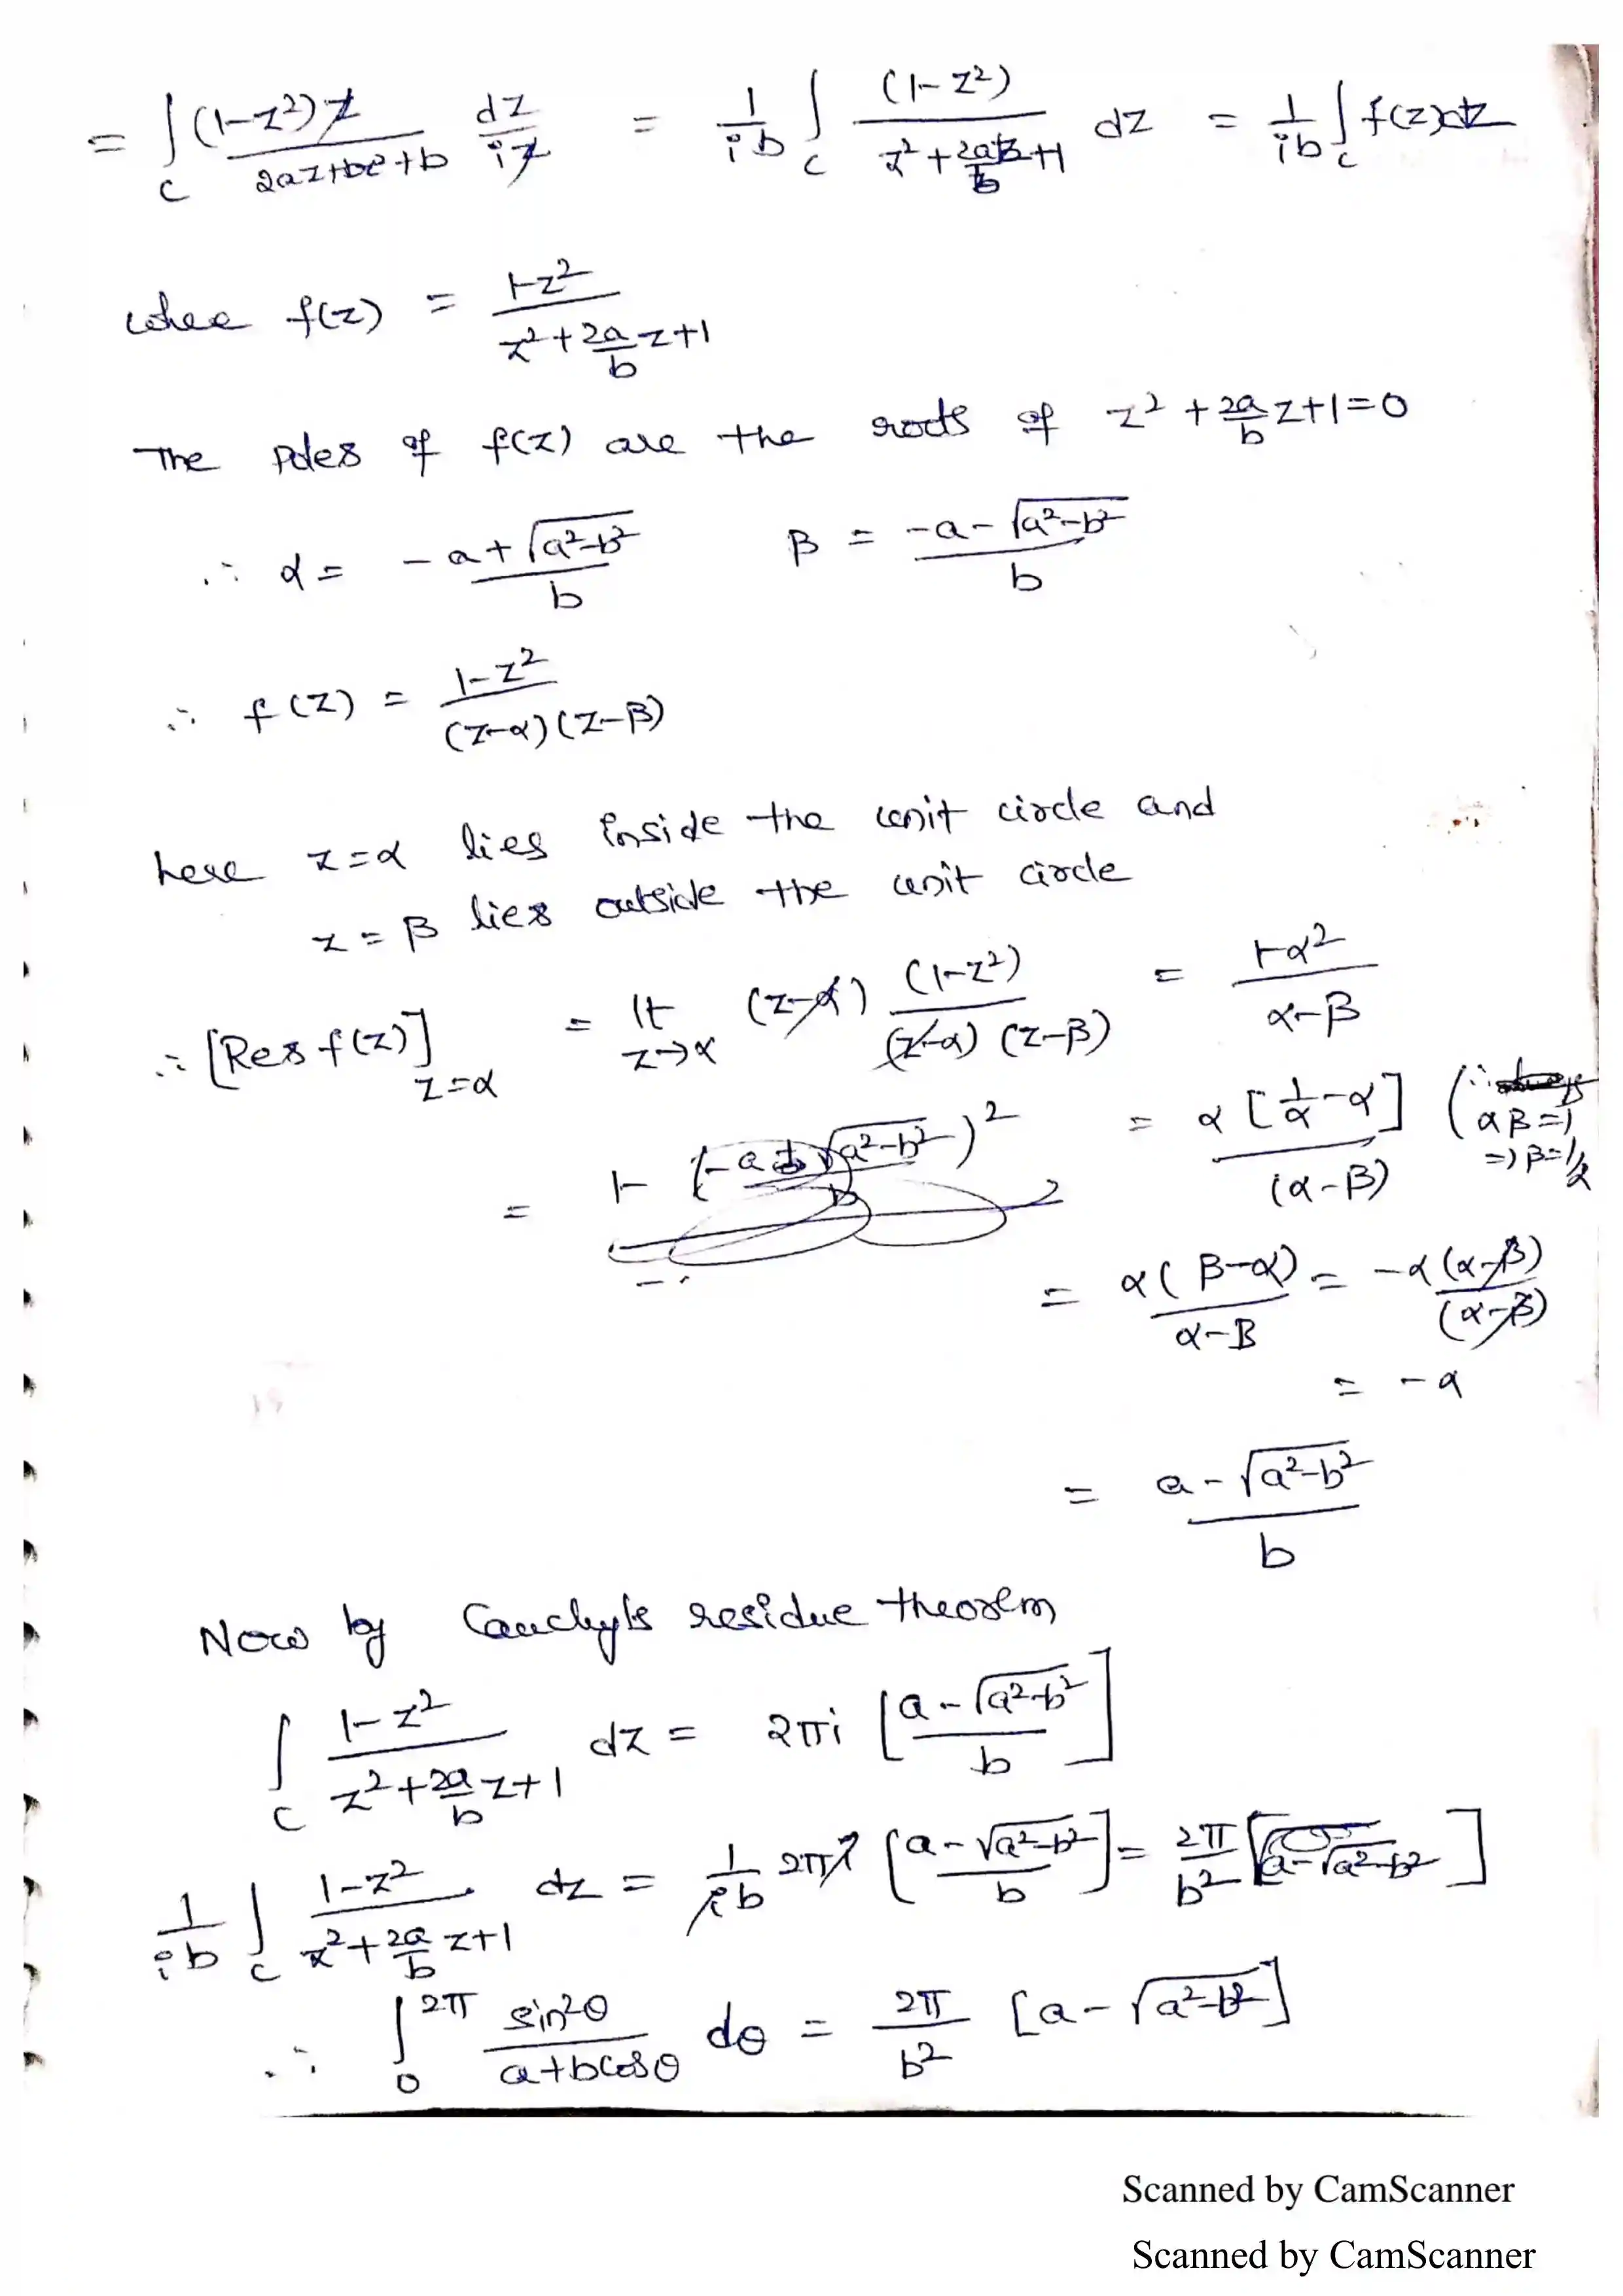 = ∫_C (1-z²)z / (2az+bz²+b) dz/(iz) = 1/(ib) ∫_C (1-z²) / (z²+(2a/b)z+1) dz = 1/(ib) ∫_C f(z)dz
where f(z) = (1-z²) / (z²+(2a/b)z+1)
The poles of f(z) are the roots of z² + (2a/b)z+1=0
∴ α = (-a+√(a²-b²)) / b β = (-a-√(a²-b²)) / b
∴ f(z) = (1-z²) / ((z-α)(z-β))
here z=α lies inside the unit circle and
z=β lies outside the unit circle
∴ [Res f(z)]_{z=α} = lt_{z→α} (z-α) (1-z²) / ((z-α)(z-β)) = (1-α²) / (α-β)
= α[1/α - α] / (α-β) (∵ αβ=1 ⇒ β=1/α
= α(β-α) / (α-β) = -α(α-β) / (α-β)
= -α
= (a-√(a²-b²)) / b
Now by Cauchy's residue theorem
∫_C (1-z²) / (z²+(2a/b)z+1) dz = 2πi [(a-√(a²-b²)) / b]
1/(ib) ∫_C (1-z²) / (z²+(2a/b)z+1) dz = 1/(ib) 2πi [(a-√(a²-b²)) / b] = 2π/b² [a-√(a²-b²)]
∴ ∫_0^{2π} sin²θ / (a+bcosθ) dθ = 2π/b² [a-√(a²-b²)]
Scanned by CamScanner
Scanned by CamScanner